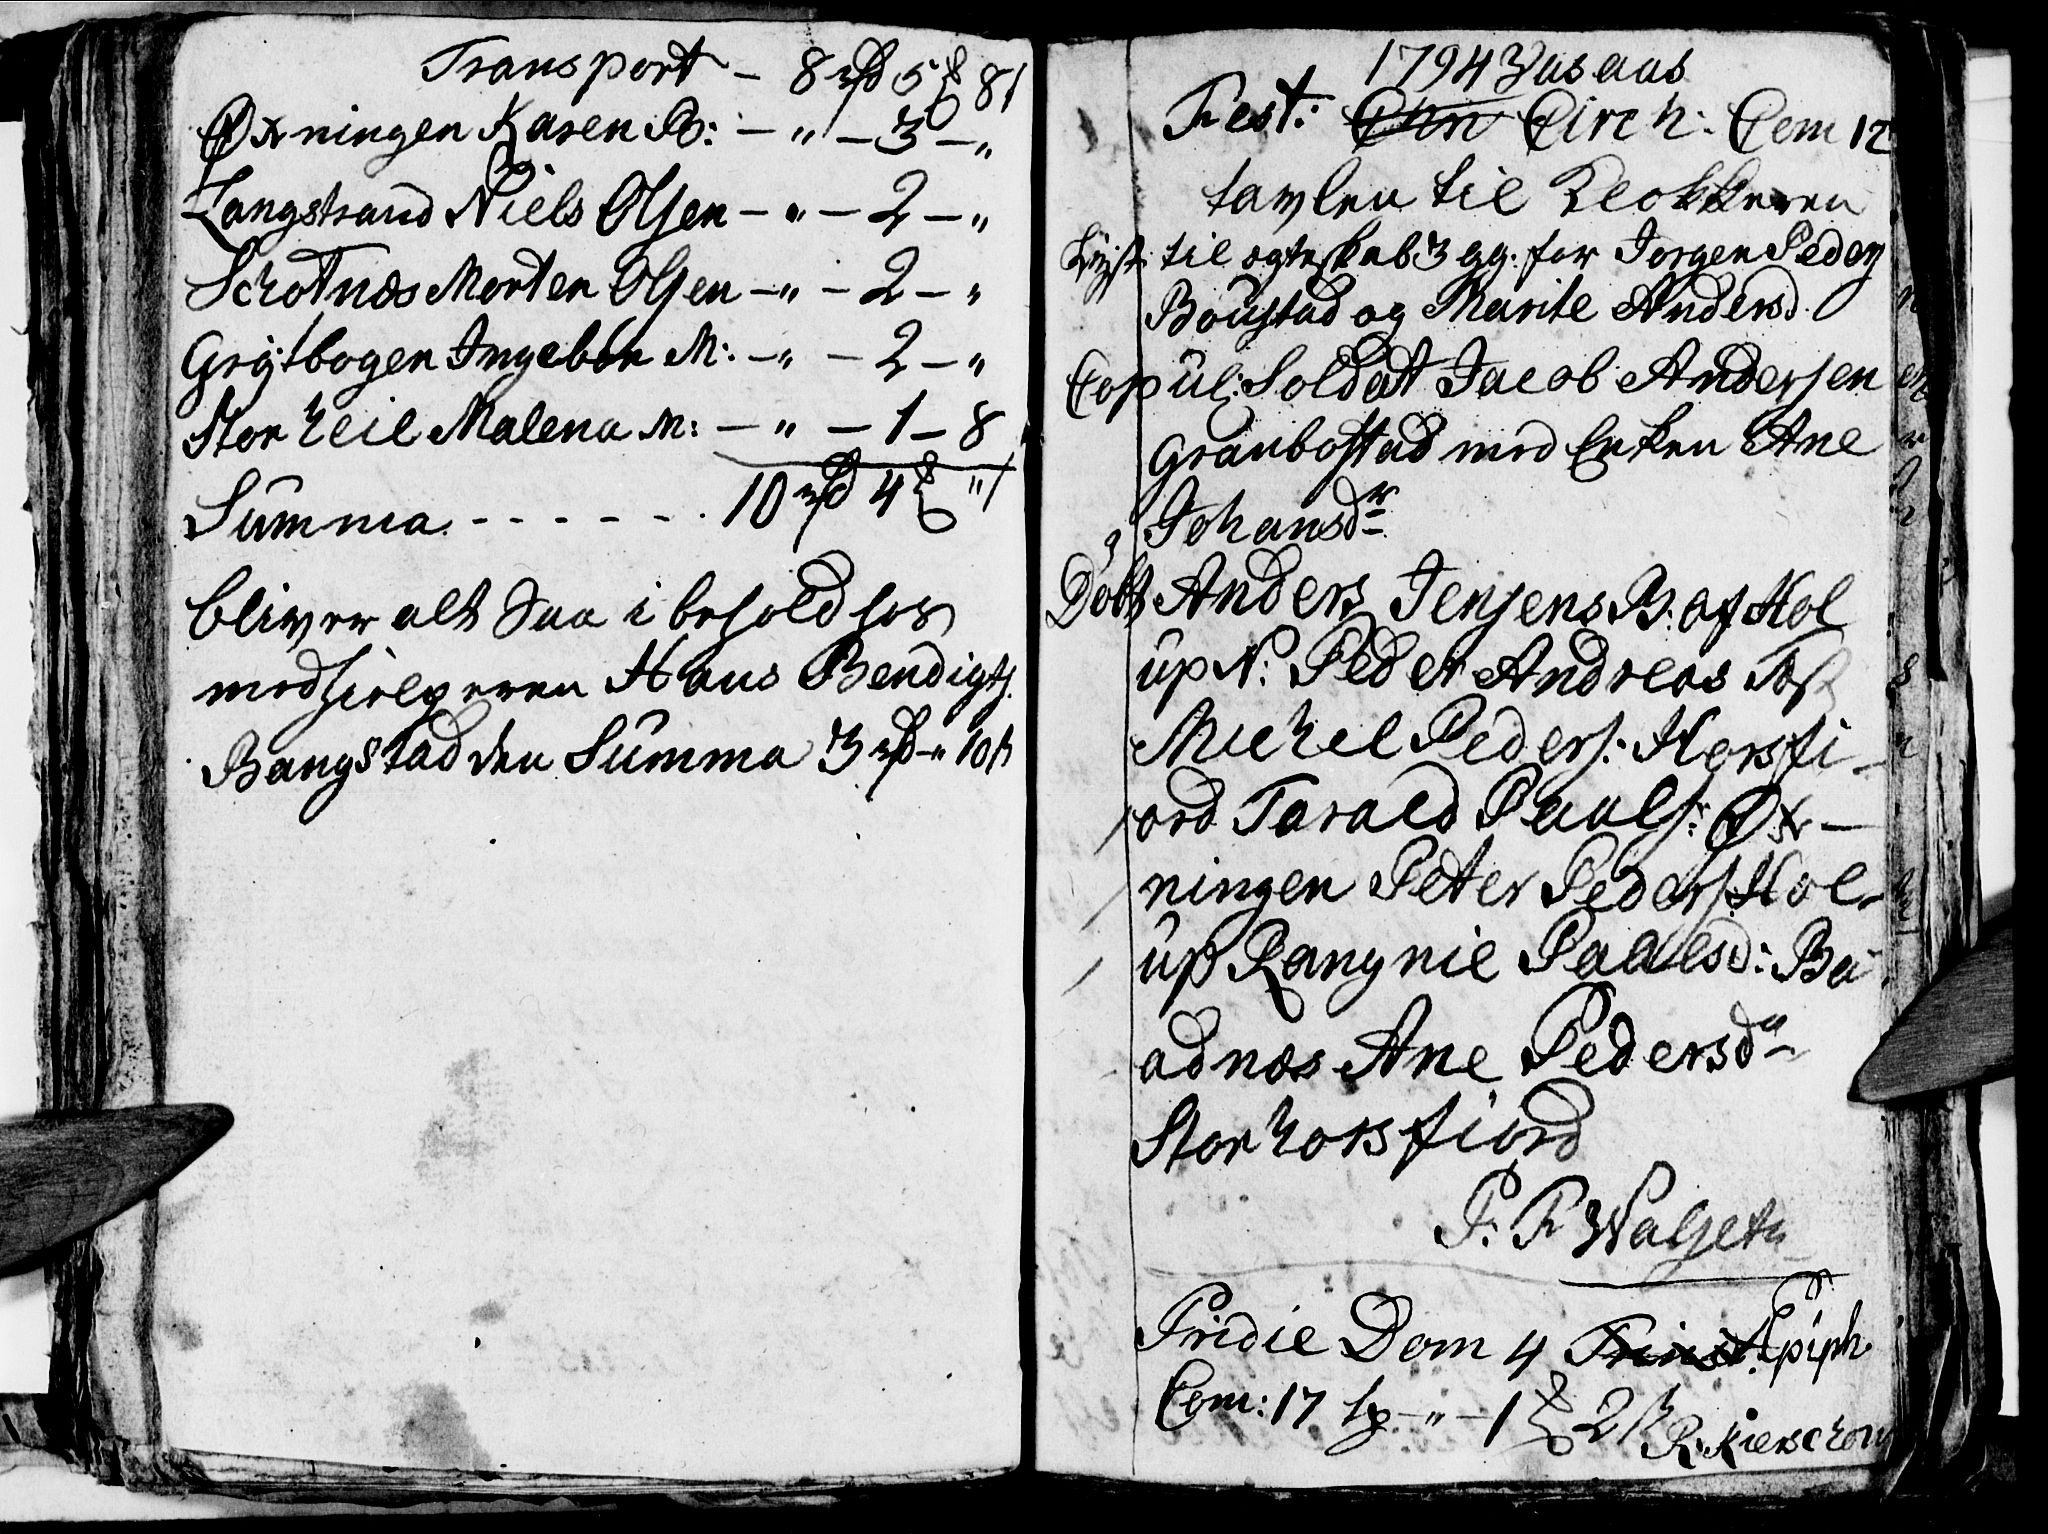 Transport – 8 rd 5 ℔ 8 ſ
Øxningen Karen B: – " – 3 – "
Langstrand Niels Olsen – " – 2 – "
Schotnæs Morten Olsen – " – 2 – "
Grÿtbogen Ingebor M: – " – 2 – "
Stor heil Malena M: – " – 1 – 8
Summa . - - - - - . 10 rd 4 ℔ " ſ
bliver alt Saa i behold hos
medhielperen Hans Bendigts.
Bangstad den Summa 3 rd – " 10 ſ
1794 Vasaas
Fest: Circ h: Com 12
tavlen til Klokkeren
Lÿst til ogteskab 3 gg. for Jorgen Peders
Boustad og Marite Andersd.
Copul: Soldat Jacob Andersen
Granbostad med Enken Ane
Johansdr
Döbt Anders Jensens B. af Hol
up N: Peder Andreas Test
Michel Peders: Horsfi
ord Tarald Paals: Øx –
ningen Peter Peders. Hol-
up Rangnil Paalsd: Ba
adnæs Ane Pedersdr
Stor horsfiord
P. F Walseth
Pridie Dom 4 Trinit. Epiph.
Com: 17 – " – 1 ℔ 2 ſ
R: Kierschow